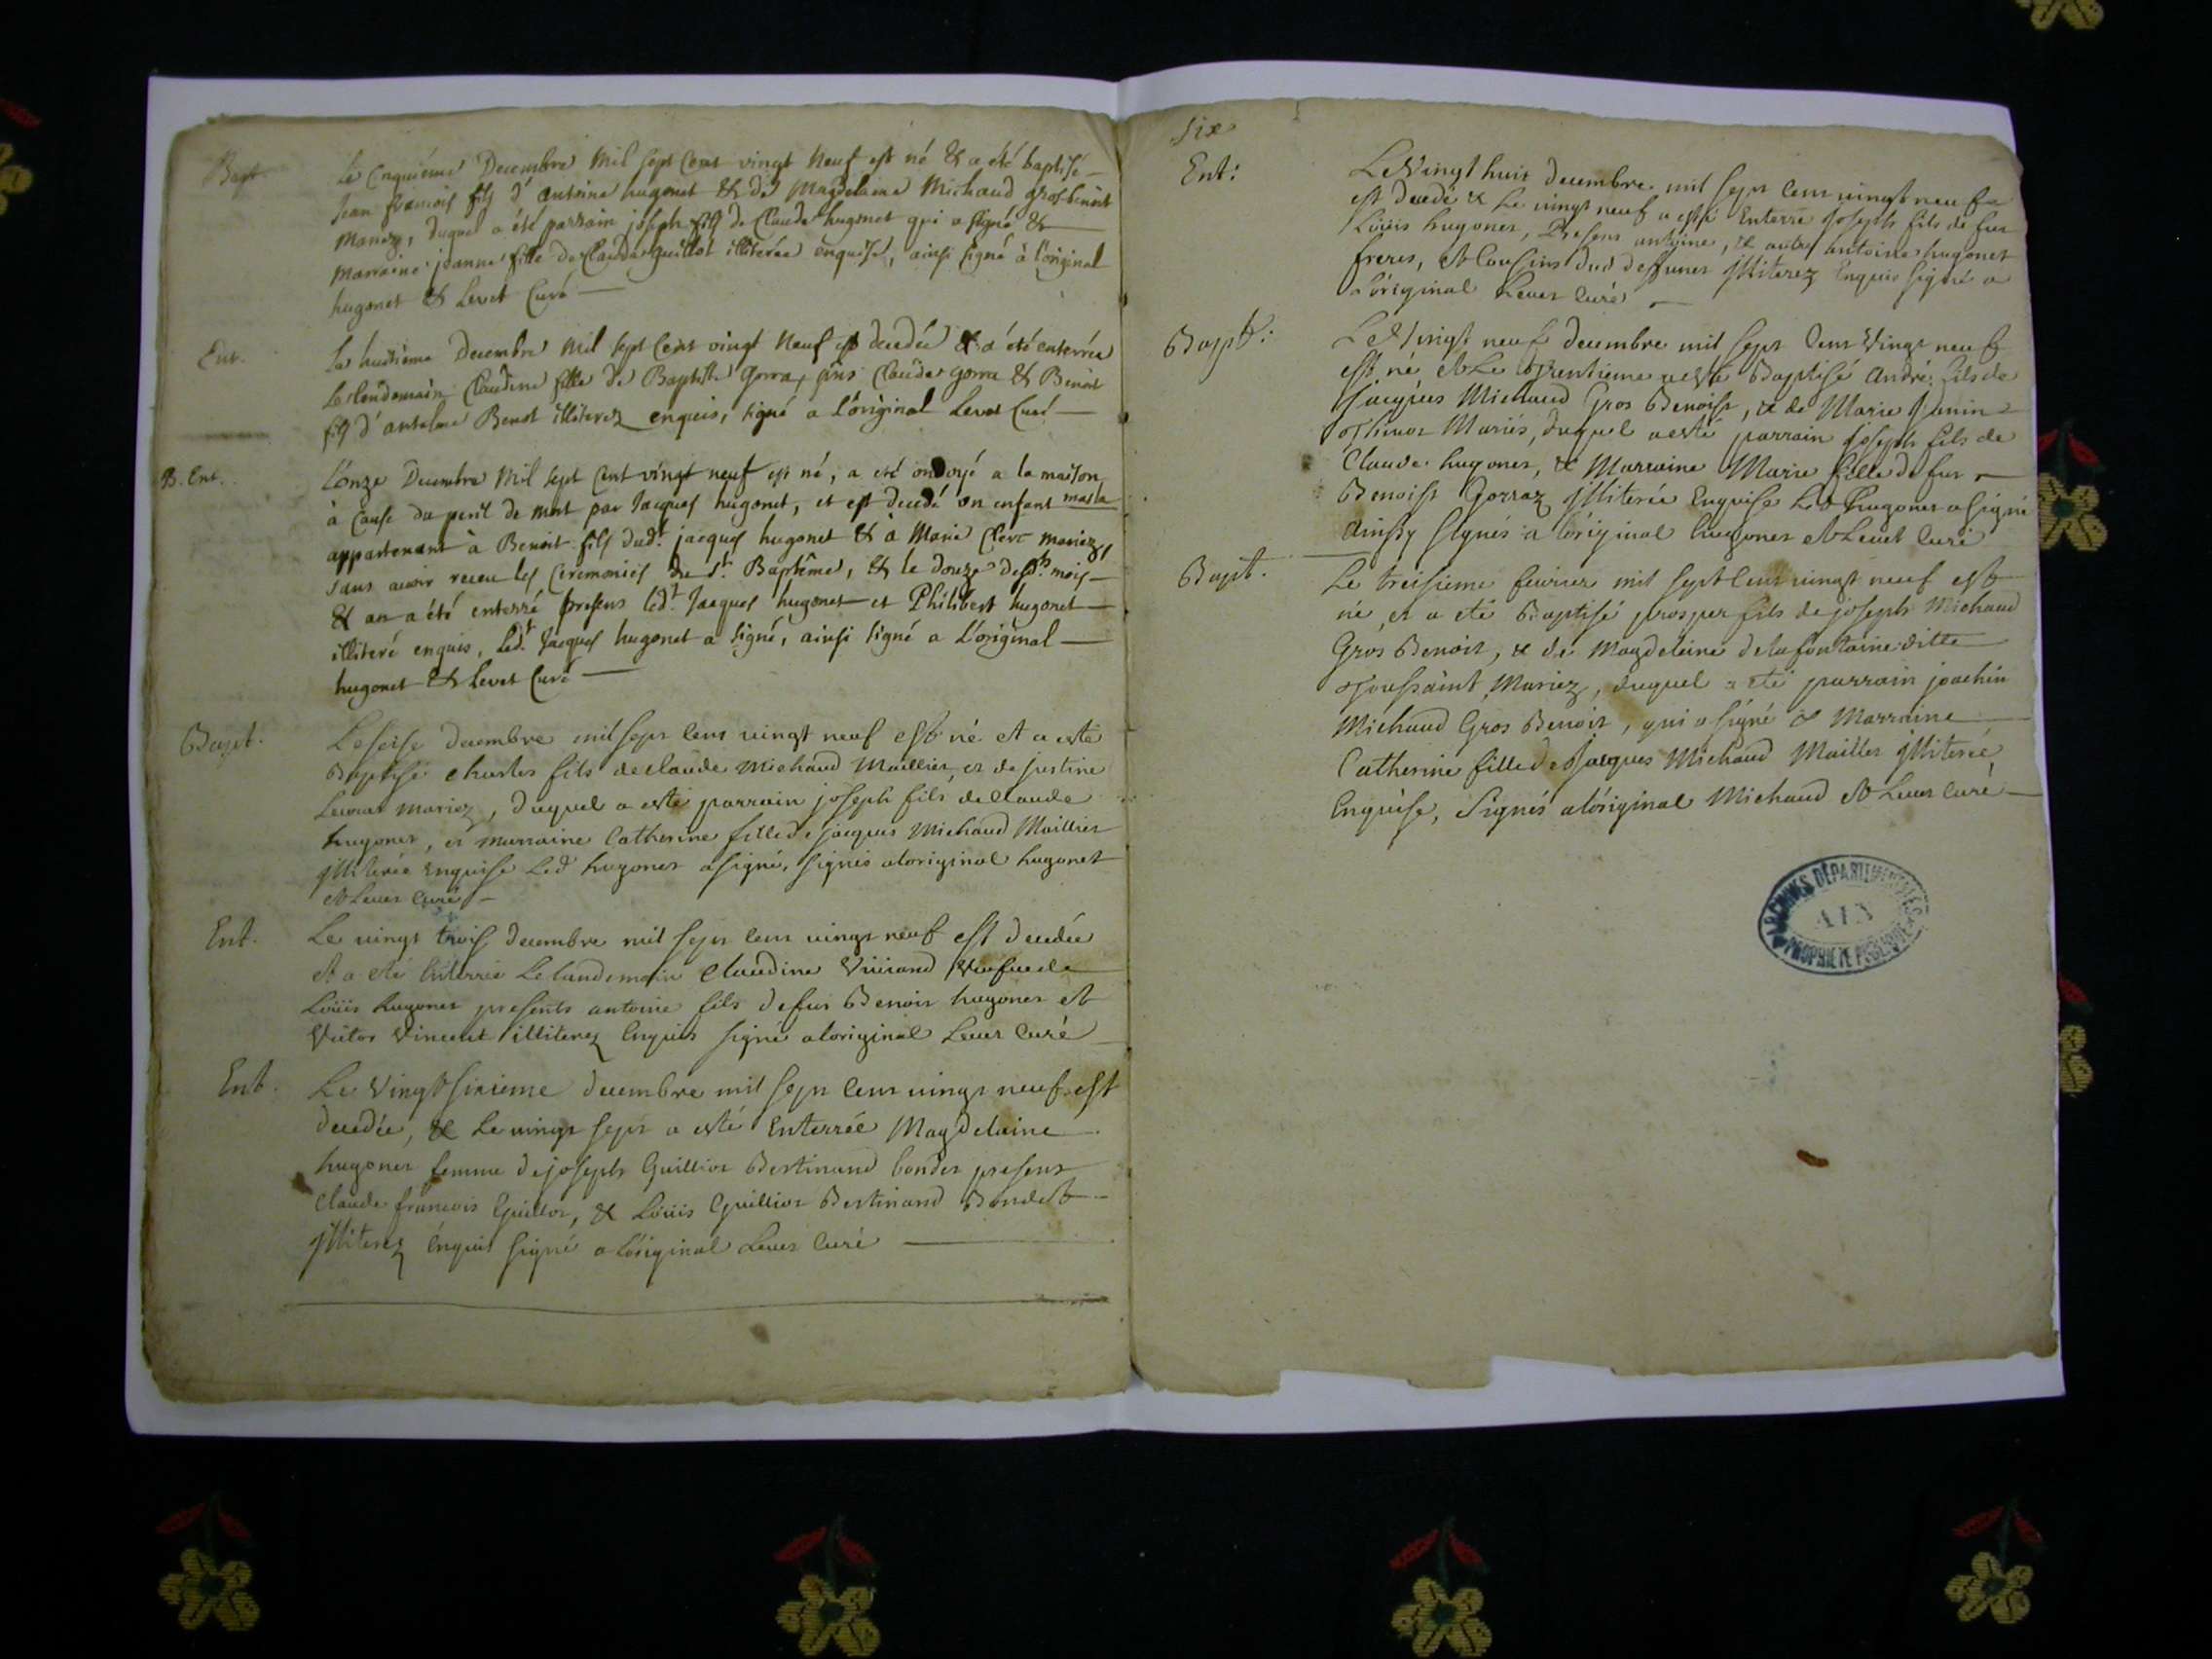 Bapt.
Le Cinquiéme Decembre Mil sept Cent vingt Neuf est né & a été baptisé
Jean francois fils d'antoine hugonet & de Magdelaine Michaud grosbenoit
Mariez, duquel a été parrain joseph fils de Claude hugonet qui a signé &
Marraine jeanne fille de Claude guillot illiterée enquise, ainsi signé à l'original
hugonet & Levet Curé
Ent.
Le huitiéme Decembre Mil sept Cent vingt Neuf est decedée & a été enterrée
Le lendemain Claudine fille de Baptiste gorra, pñs Claude gorra & Benoit
fils d'antelme Benot illiterez enquis, signé a L'original Levet Curé
B. Ent.
L'onze Decembre Mil sept Cent vingt neuf est né, a eté ondoyé a la maison
à Cause du peril de mort par Jacques hugonet, et est decedé un enfant masle
appartenant à Benoit fils dud.t jacques hugonet & à Marie Clerc mariez
sans avoir receu les Ceremonies du s.t Baptême, & le douze desd.ts mois
& an a été enterré presens led.t Jacques hugonet et Philibert hugonet
illiteré enquis, Led.t Jacques hugonet a signé, ainsi signé a L'original
hugonet & Levet Curé
Bapt.
Le seise decembre mil sept cent vingt neuf est né et a esté
Baptisé charles fils de claude Michaud Maillier, et de justine
mariez, duquel a esté parrain joseph fils de Claude
hugonet, et marraine Catherine fille de jacques Michaud Maillier
jlliterée Enquise Led hugonet a signé, signés a loriginal hugonet
et Levet Curé
Ent.
Le vingt trois decembre mil sept cent vingt neuf est decedée
et a eté Enterrée Le landemain Claudine Vuirand Veufve de
Loüis hugonet presents antoine fils de feu Benoit hugonet et
Victor Vincent illiterez Enquis signé a loriginal Levet Curé
Ent.
Le Vingt sixieme decembre mil sept cent vingt neuf est
decedée, & Le vingt sept a esté Enterrée Magdelaine
hugonet femme de joseph Guillior Bertinand bondet present
Claude francois Guillot, & Loüis Guillior Bertinand Bondet
jlliterez Enquis signé a Loriginal Levet Curé
six
Ent:
Le Vingt huit decembre mil sept cent vingt neuf
est decedé & Le vingt neuf a esté Enterré joseph fils de feu
Loüis hugonet, Presens antoine, & autre antoine hugonet
freres, et Cousins dud deffunct jlliterez Enquis signé a
L'original Levet Curé
Bapt:
Le Vingt neuf decembre mil sept Cent Vingt neuf
est né et Le Trentieme a esté Baptisé André fils de
Jacques Michaud Gros Benoist, & de Marie Janin
Mariés, duquel a esté parrain joseph fils de
Claude hugonet, & Marraine Marie fille de feu
Benoist Gorraz jlliterée Enquise Led hugonet a signé
Ainssy signés a loriginal hugonet et Levet Curé
Bapt.
Le treisieme fevrier mil sept Cent vingt neuf est
né, et a eté Baptisé prosper fils de joseph Michaud
Gros Benoit, & de Magdeleine delafontaine ditte
Toussaint Mariez, duquel a eté parrain joachin
Michaud Gros Benoit, qui a signé & Marraine
Catherine fille de Jacques Michaud Maillet jlliterée,
Enquise, Signés a lóriginal Michaud et Levet Curé
ARCHIVES DÉPARTEMENTALES
AIN
PROPRIÉTÉ PUBLIQUE